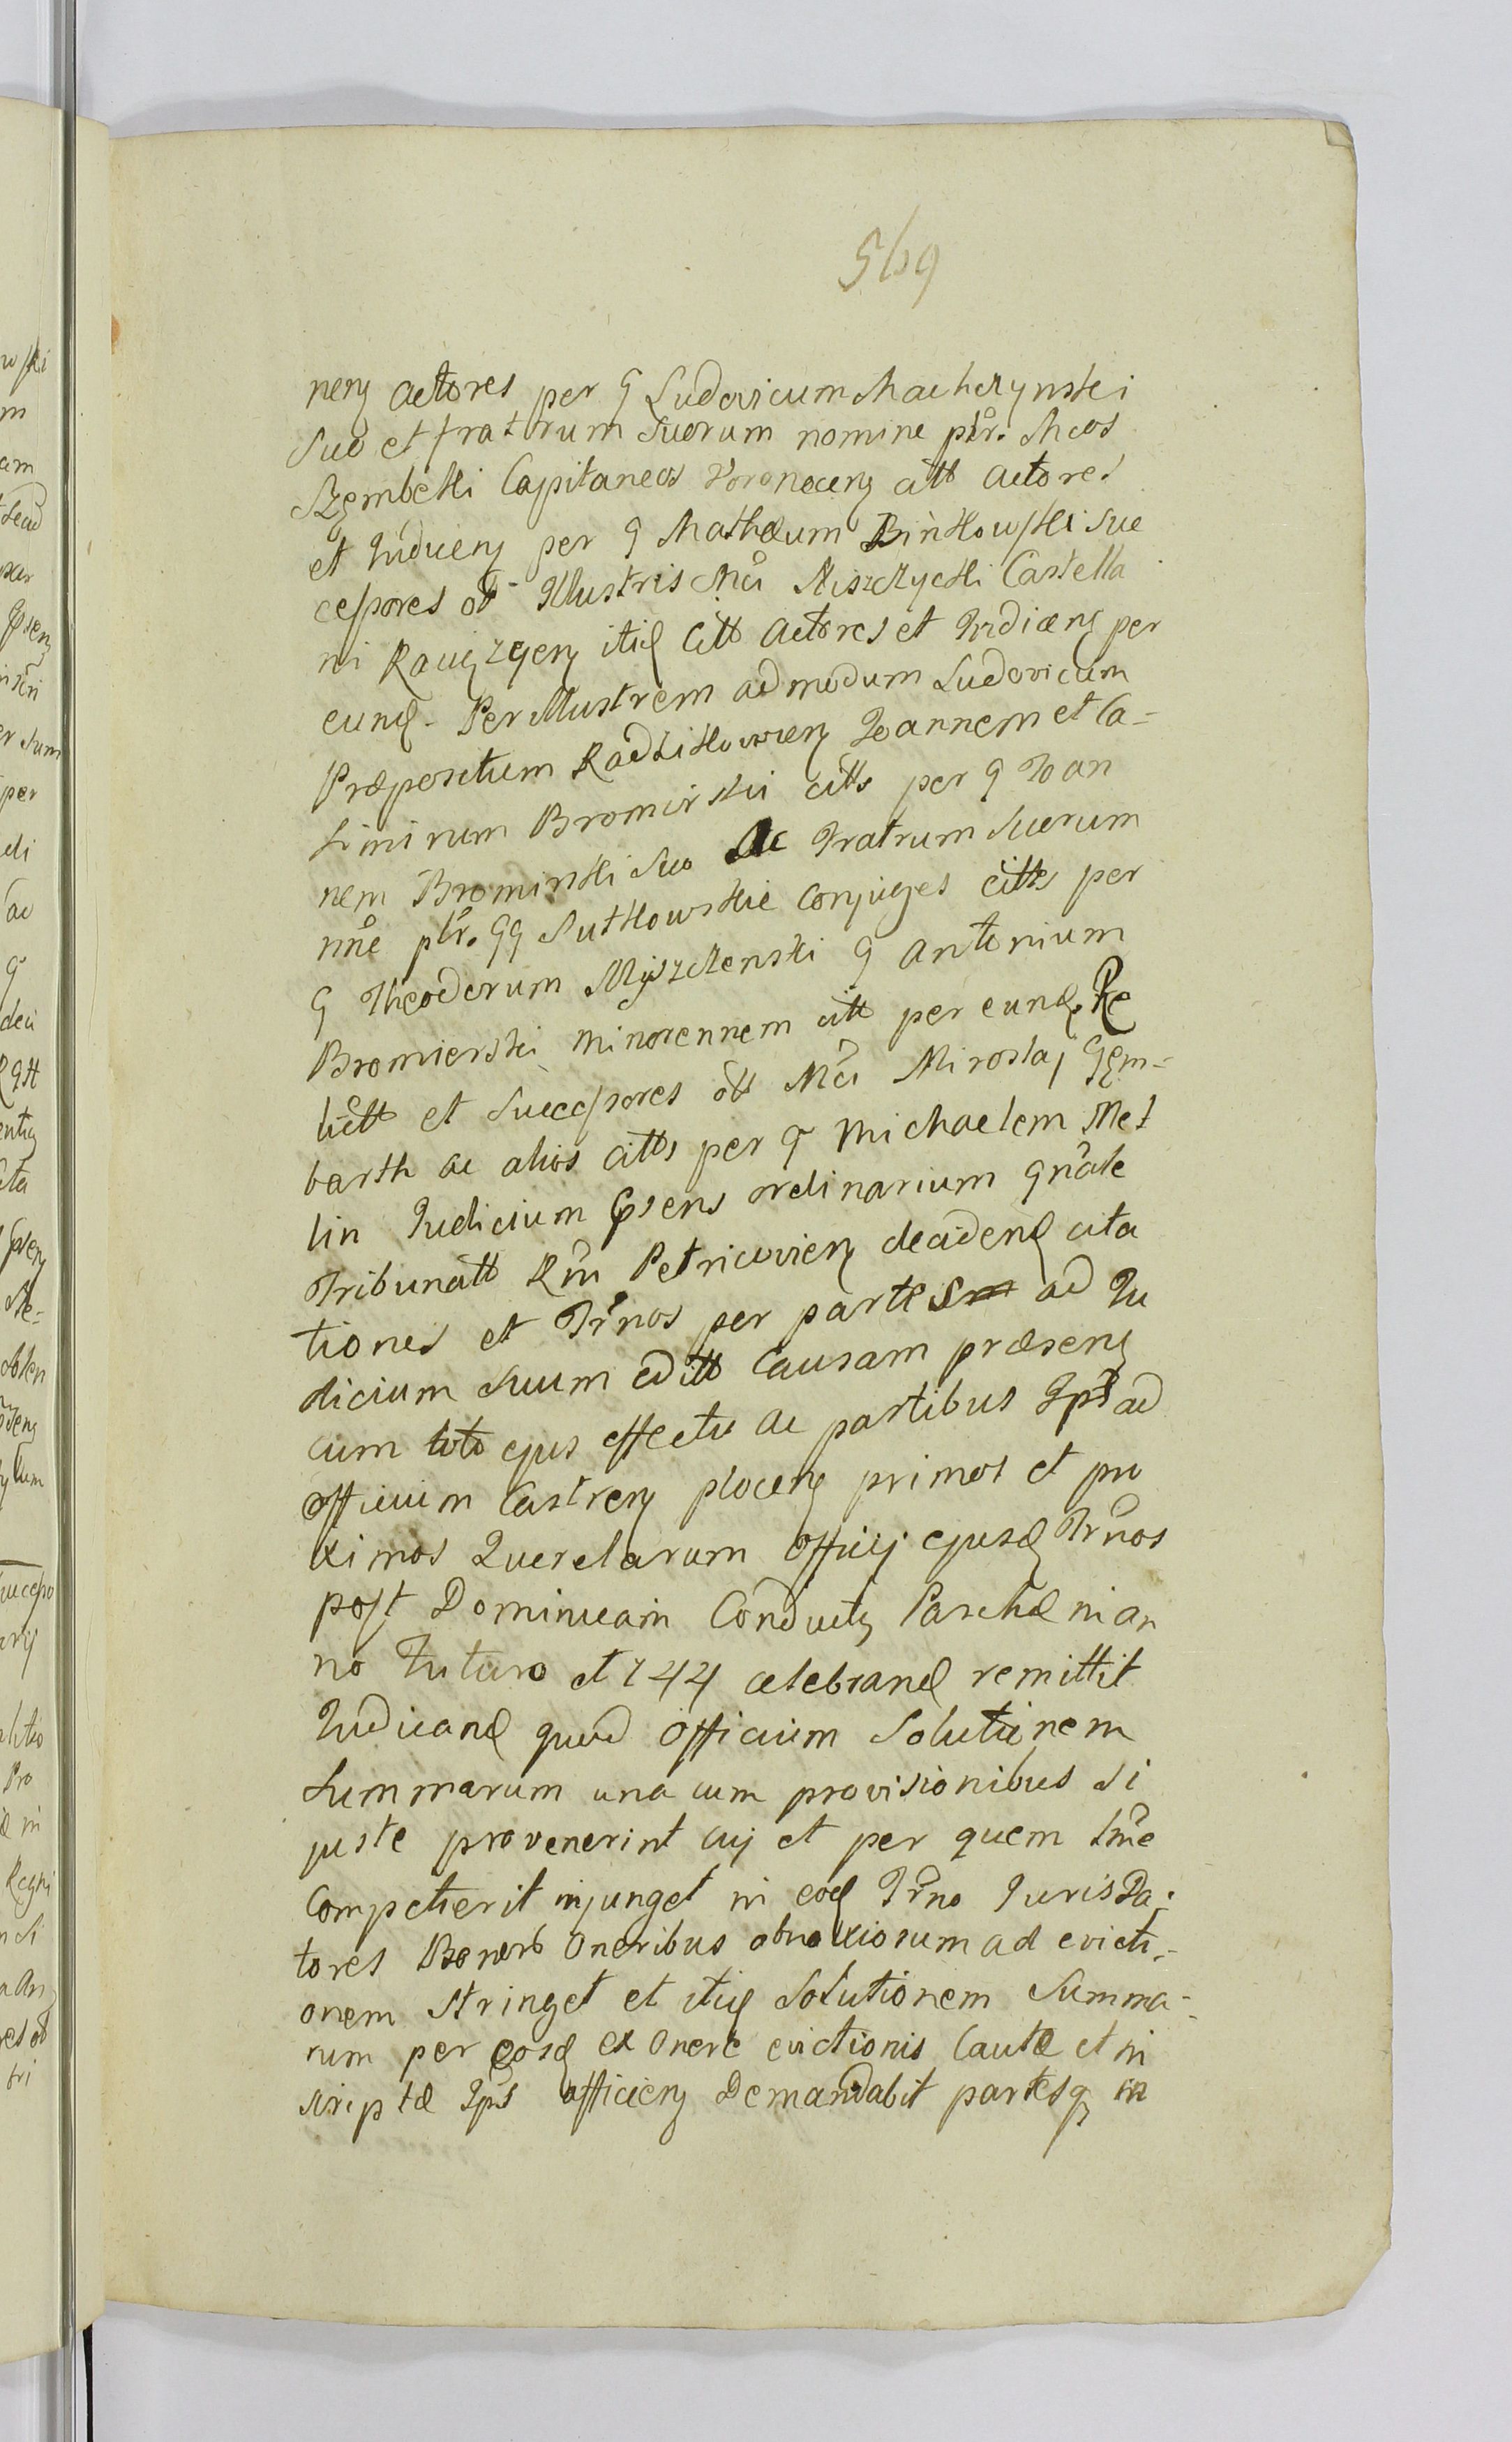 569
neng actores per G Ludovicum Machczynski
suo et fratrum suorum nomine pttr. Mcos
Szembekki Capitaneos Voronecens citt actores
et Judicens per G Mathæum Binkowski suc
cessores ott Illustris Mci Niszczycki Castella
ni Raciązgens itid citt actores et Judicens per
eund. Per Illustrem admodum Ludovicum
Præpositum Radzikoviens Joannem et Ca-
simirum Bromirski citts per G Joan
nem Bromirski suo ac Fratrum suorum
nne pttr. GG Sutkowskie conjuges citts per
G Theodorum Myszczenski G Antonium
Bromierski minorennem citt per eund. Re
lictt et successores ott Mci Miroslaj Gem-
barth ac alios citts per G Michaelem Met
lin Judicium Præsens ordinarium gnale
Tribunatt Rni Petricoviens decidend cita
tiones et Trnos per partes ad Ju
dicium suum editt causam præsens
cum toto ejus effectu ac partibus Ips ad
officium Castrens plocens primos et pro
ximos Querelarum officij ejusd Trnos
post Dominicam Conductus Paschæ in an
no futuro et 744 celebrand remittit
Judicand quod officium Solutionem
summarum una cum provisionibus si
juste provenerint cuj et per quem time
Competierit injunget in eod Trno Juris Da-
tores Bonorb oneribus obnoxiorum ad evicti-
onem stringet et itid Solutionem Summa-
rum per eosd ex onere evictionis Cautæ et in
scriptæ Ips officiens Demandabit partesq in